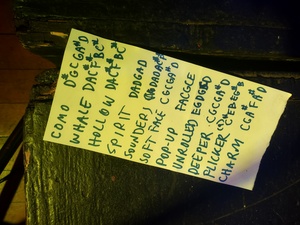 COMO D#GCGA#D
WHALE DAC#F#BC#
HOLLOW DAC#F#BC#
SPIRIT DADGAD
SOUNDER,
SOFT FACE CGCGA#D
POP-UP FACGCE
UNROLLED EGDGBD
DEEPER CGCGA#D
FLICKER
CHARM CGA#FA#D